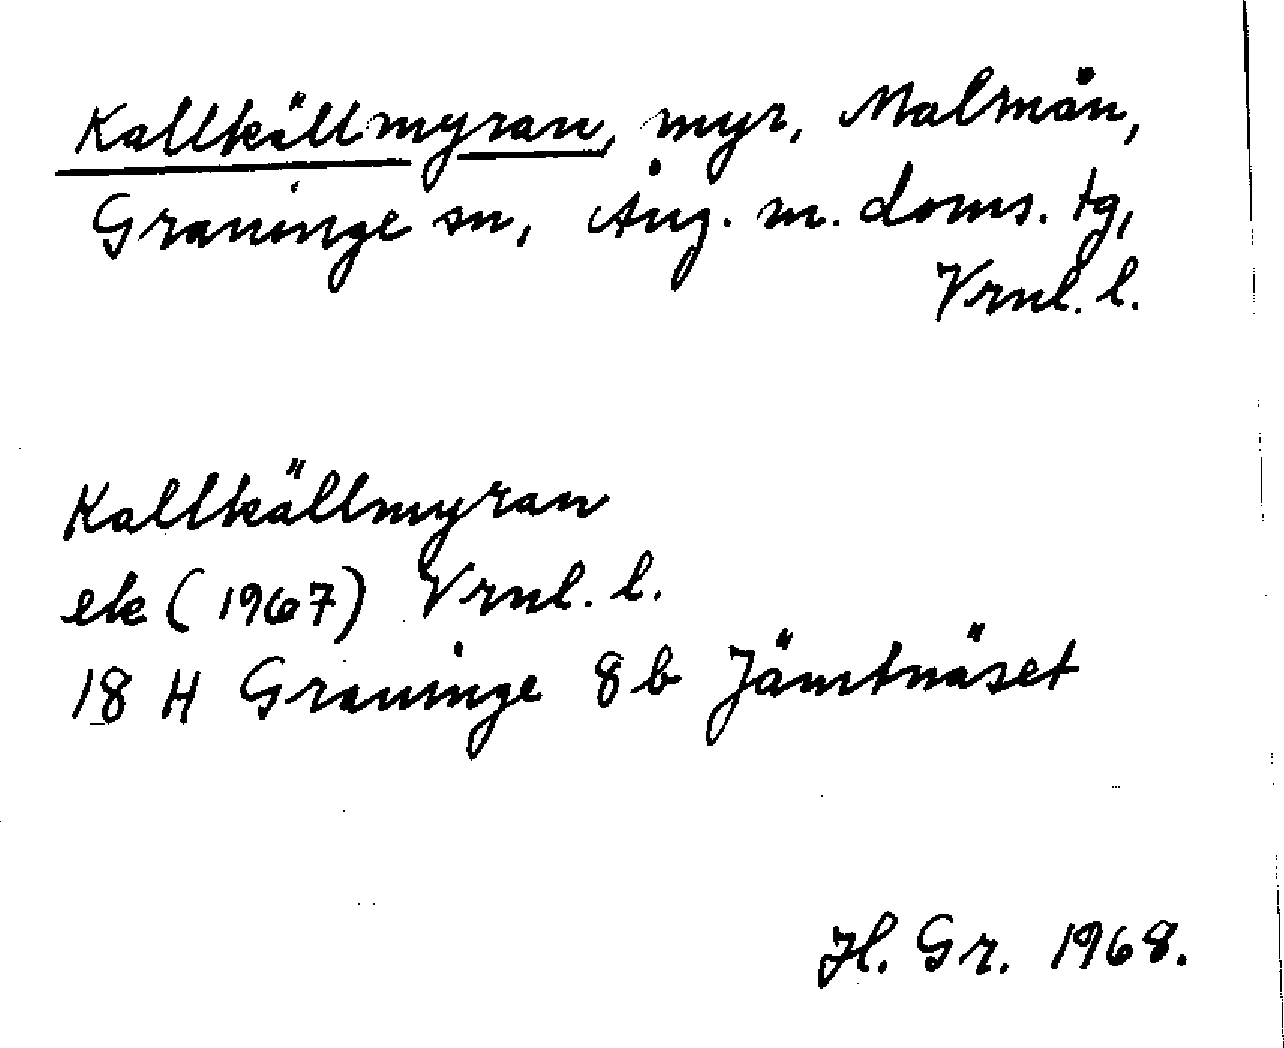 Kallkällmyran, myr, Malmån,
Graninge sn, Ång. m. doms. tg,
Vrnl. l.
Kallkällmyran
ek (1967) Vrnl. l.
18 H Graninge 8 b Jämtnäset
H. Gr. 1968.